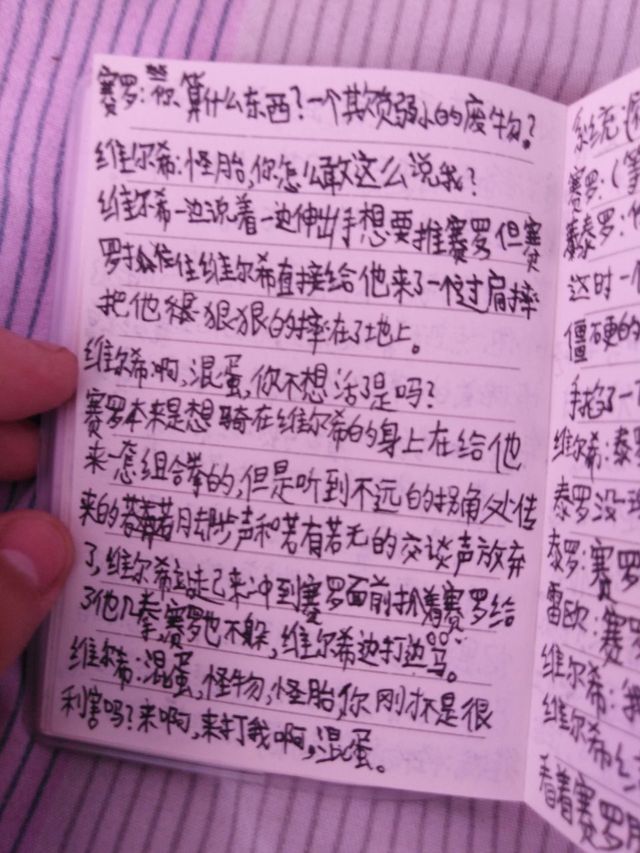 赛罗:你算什么东西?一个欺负弱小的废物?
维尔希:怪胎,你怎么敢这么说我?
维尔希一边说着一边伸出手想要推赛罗但赛
罗抓住维尔希直接给他来了一个过肩摔
把他狠狠的摔在了地上。
维尔希:啊,混蛋,你不想活了是吗?
赛罗本来是想骑在维尔希的身上在给他
来一套组合拳的,但是听到不远的拐角处传
来的若有若无的交谈声放弃
了,维尔希站起来冲到赛罗面前抓着赛罗给
了他几拳,赛罗也不躲,维尔希边打边骂。
维尔希:混蛋,怪物,怪胎,你刚才不是很
利害吗?来啊,来打我啊,混蛋。
系统:
赛罗:(等
泰罗:你
这时一个
僵硬的
手掐了一
维尔希:泰罗
泰罗没
泰罗:赛罗
雷欧:赛罗
维尔希:我
维尔希
看着赛罗